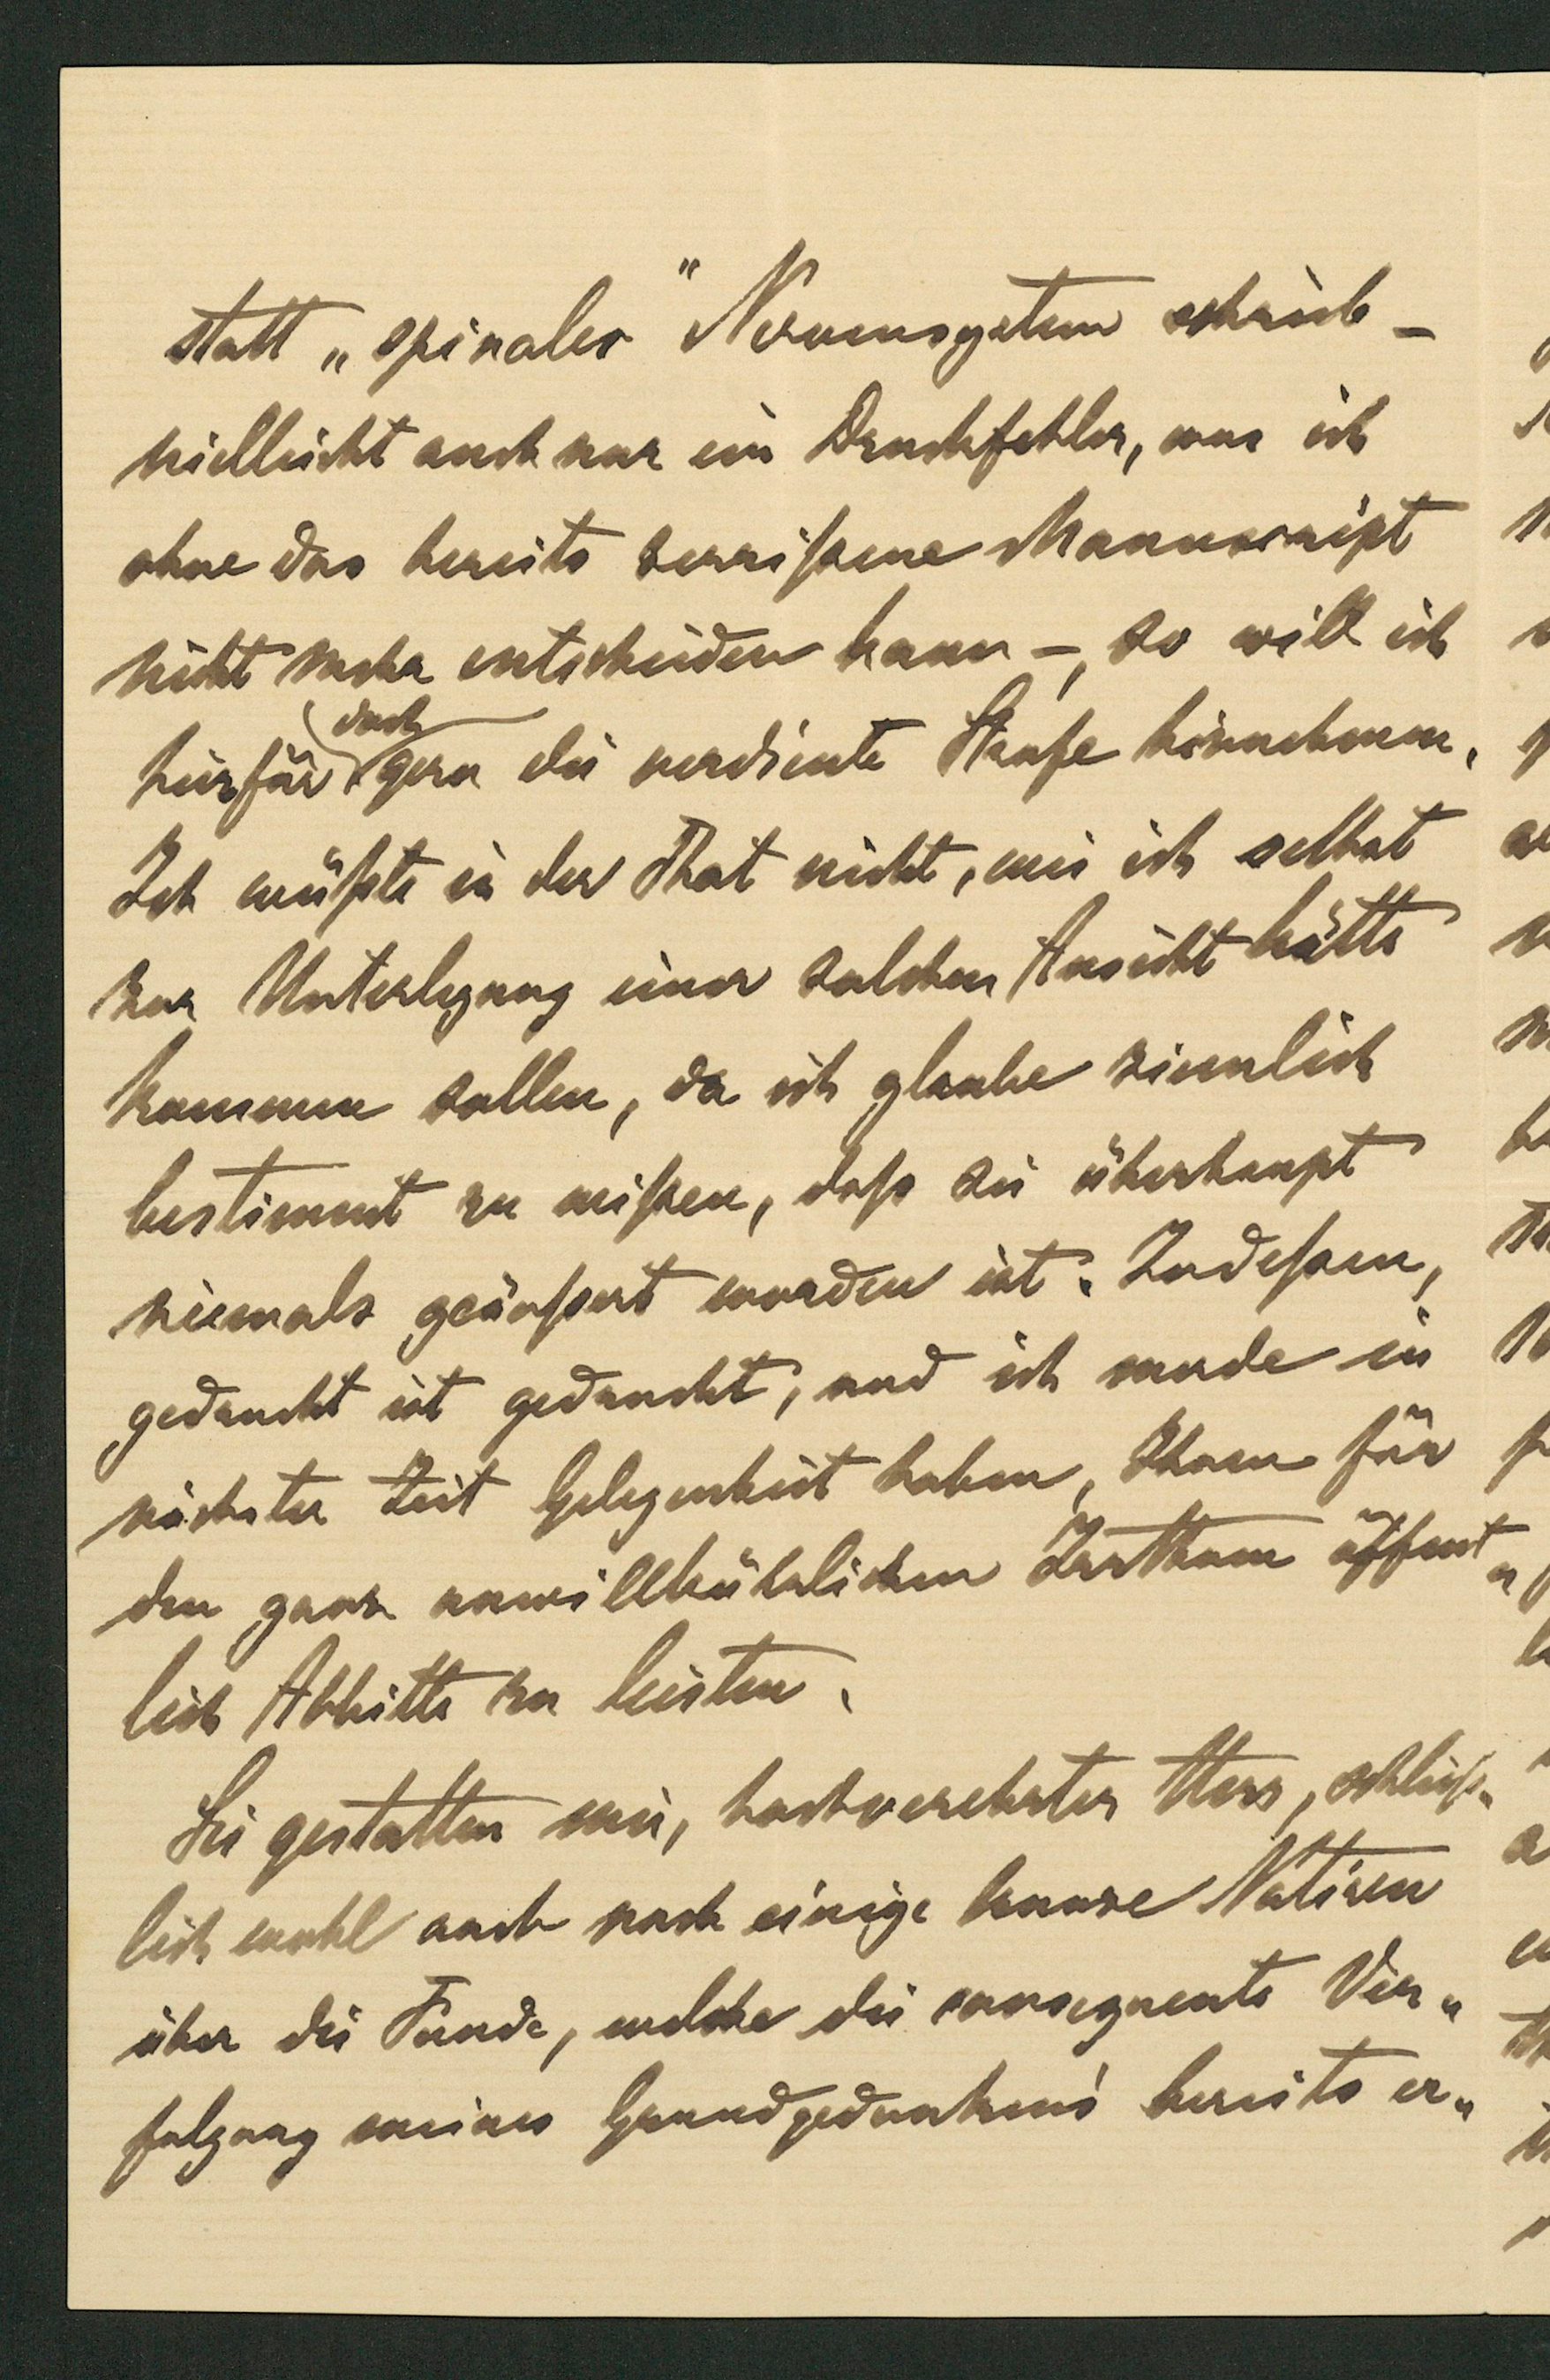 statt „spinales“ Nervensystem schrieb –
vielleicht auch nur ein Druckfehler, was ich
ohne das bereits zerrißene Manuscript
nicht mehr entscheiden kann –, so will ich
doch
hierfür gern die verdiente Strafe hinnehmen.
Ich wüßte in der That nicht, wie ich selbst
zur Unterlegung einer solchen Ansicht hätte
kommen sollen, da ich glaube ziemlich
bestimmt zu wißen, daß sie überhaupt
niemals geäußert worden ist. Indeßen,
gedruckt ist gedruckt, und ich werde in
nächster Zeit Gelegenheit haben, Ihnen für
den ganz unwillkührlichen Irrthum öffent„
lich Abbitte zu leisten.
Sie gestatten mir, hochverehrter Herr, schließ„
lich wohl auch noch einige kurze Notizen
über die Funde, welche die consequente Ver„
folgung meines Grundgedankens bereits er„